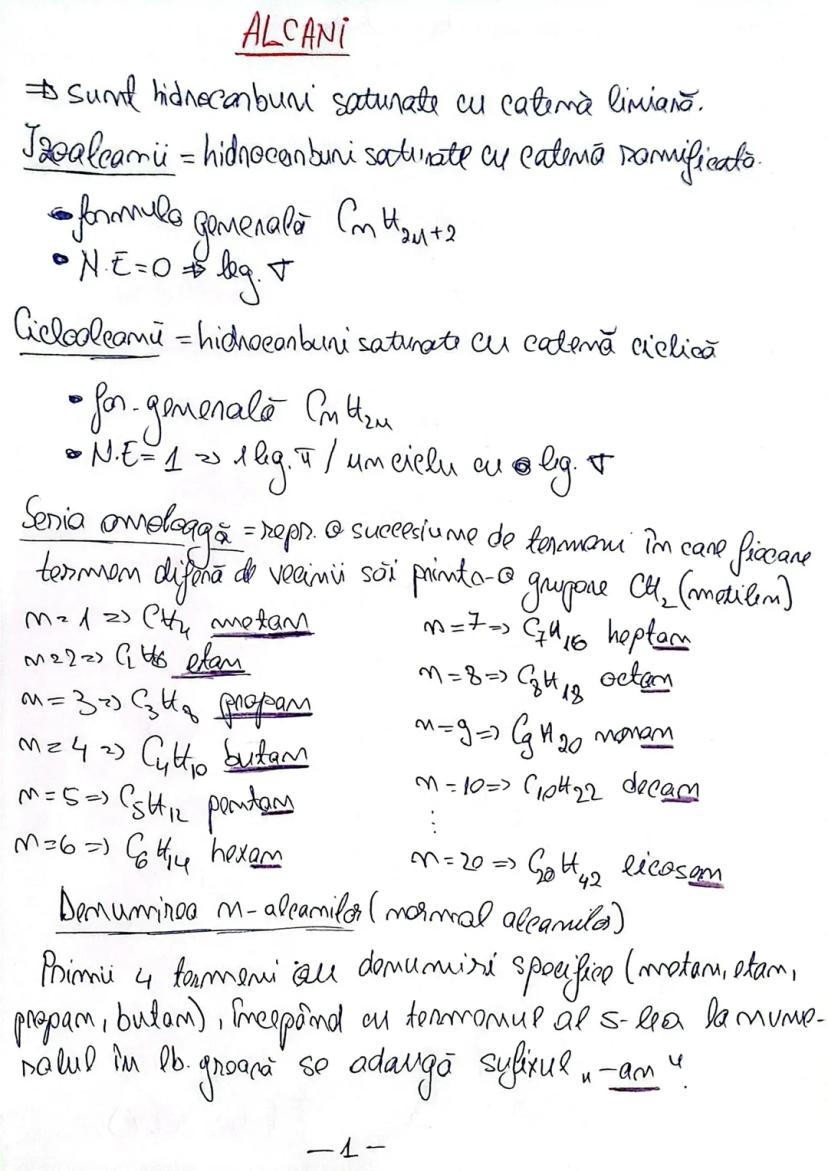 ALCANI
⇒ sunt hidrocarburi saturate cu catenă liniară.
Izoalcanii = hidrocarburi saturate cu catenă ramificată.
• formula generală CnH2n+2
• N.E=0 ⇒ leg. σ
Cicloalcanii = hidrocarburi saturate cu catenă ciclică
• for. generală CnH2n
• N.E=1 ⇒ 1 leg. π / un ciclu cu leg. σ
Seria omoloagă = repr. o succesiune de termeni în care fiecare
termen diferă de vecinii săi printr-o grupare CH2 (metilen)
n=1 => CH4 metan
n=2 => C2H6 etan
n=3 => C3H8 propan
n=4 => C4H10 butan
n=5 => C5H12 pentan
n=6 => C6H14 hexan
n=7 => C7H16 heptan
n=8 => C8H18 octan
n=9 => C9H20 nonan
n=10 => C10H22 decan
⋮
n=20 => C20H42 eicosan
Denumirea n-alcanilor (normal alcanilor)
Primii 4 termeni au denumiri specifice (metan, etan,
propan, butan), începând cu termenul al 5-lea la nume-
ralul în lb. greacă se adaugă sufixul „-an".
-1-